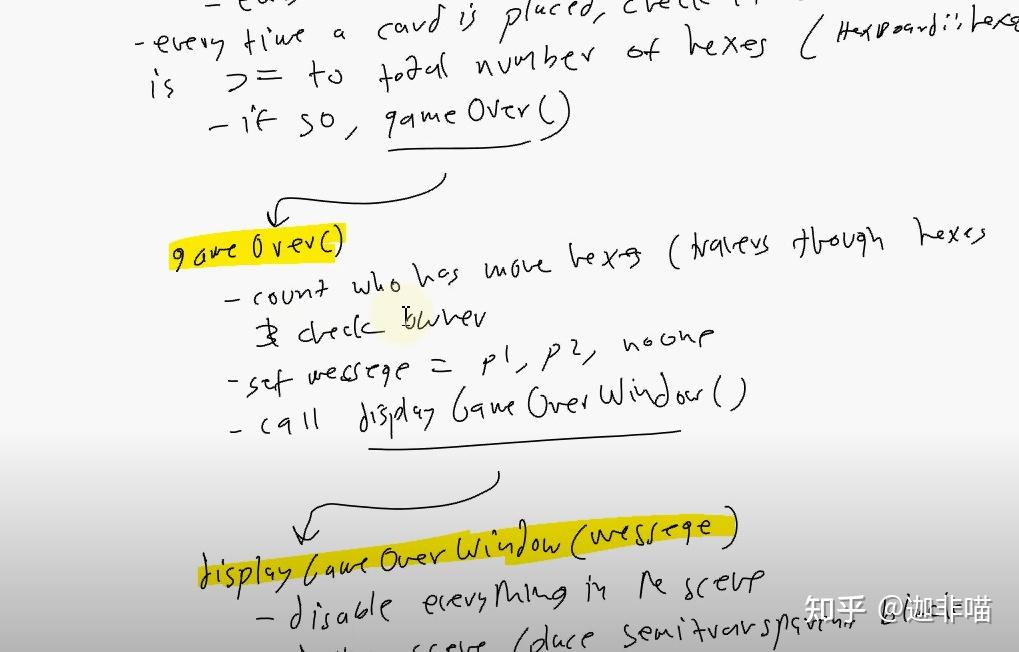 - every time a card is placed, check
is >= to total number of hexes (HexBoard::hexes
- if so, gameOver()
gameOver()
- count who has more hexes (travers though hexes
& check owner
- set message = p1, p2, noone
- call displayGameOverWindow()
displayGameOverWindow(message)
- disable everything in the scene
scene (place semitransparent black
知乎 @迦非喵